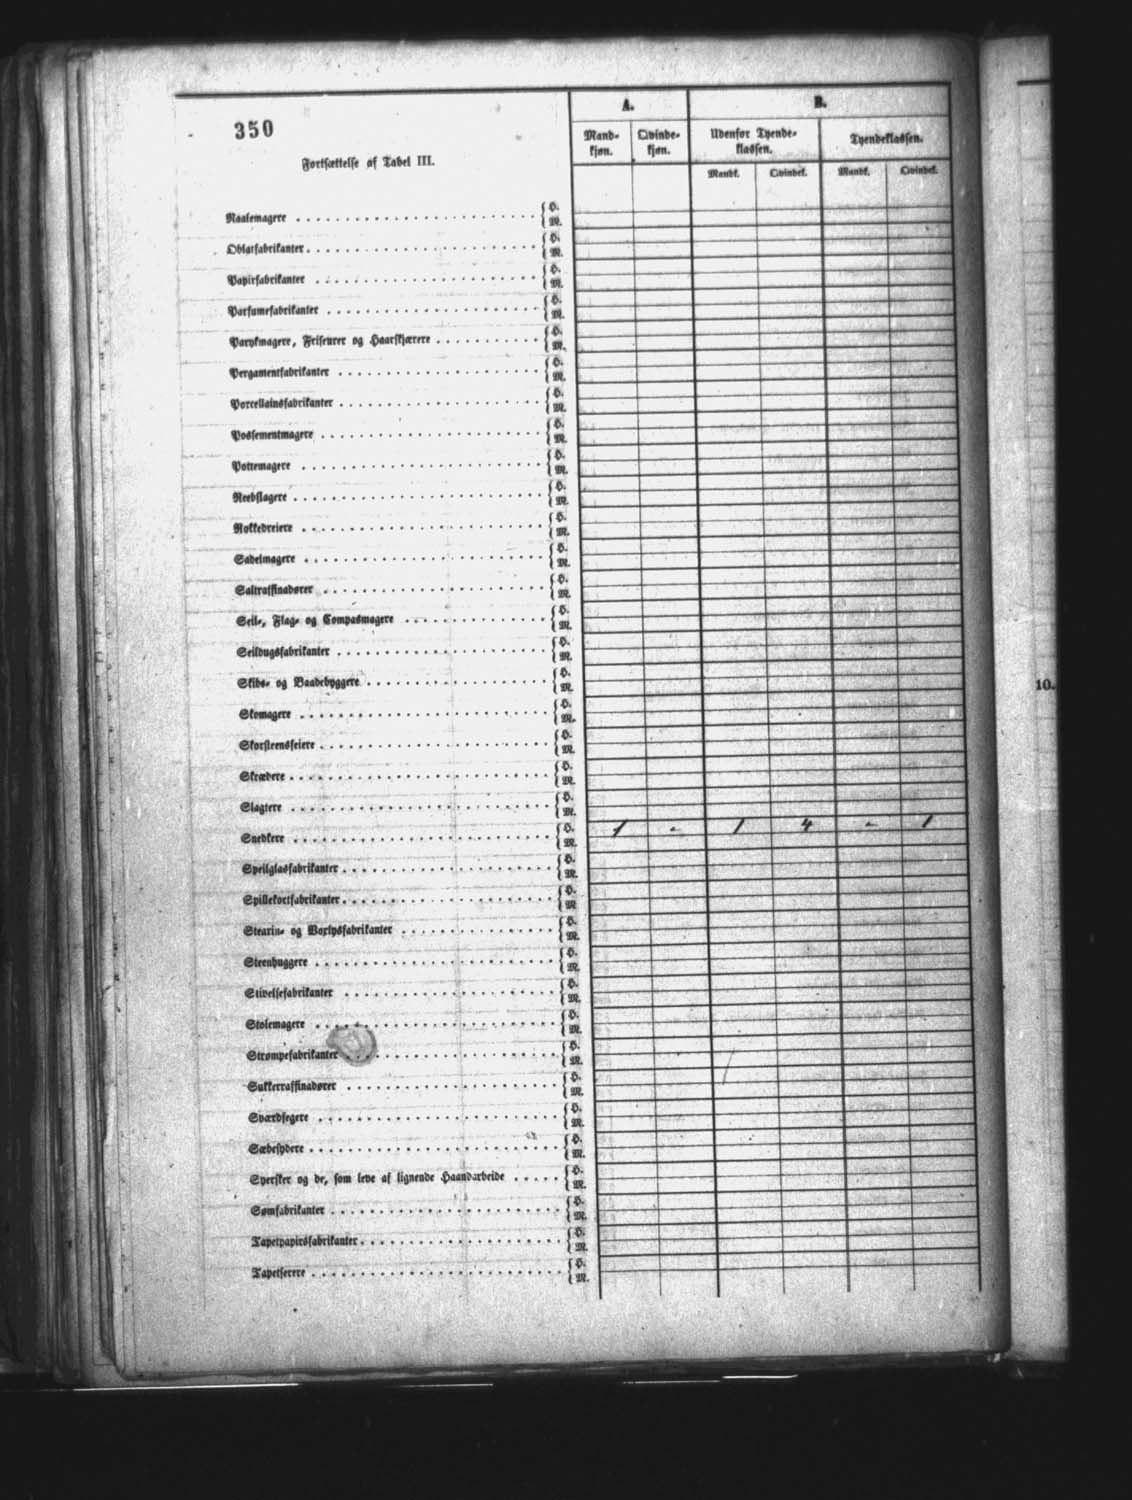 350
Fortsættelse af Tabel III.
A.
B.
Mand-
kjøn.
Qvinde-
kjøn.
Udenfor Tyende-
klassen.
Tyendeklassen.
Mandk.
Qvindek.
Mandk.
Qvindek.
Naalemagere { H.
M.
Oblatfabrikanter { H.
M.
Papirfabrikanter { H.
M.
Parfumefabrikanter { H.
M.
Parykmagere, Friseurer og Haarskjærere { H.
M.
Pergamentfabrikanter { H.
M.
Porcellainsfabrikanter { H.
M.
Possementmagere { H.
M.
Pottemagere { H.
M.
Reebslagere { H.
M.
Rokkedreiere { H.
M.
Sadelmagere { H.
M.
Saltraffinadører { H.
M.
Seil-, Flag- og Compasmagere { H.
M.
Seildugsfabrikanter { H.
M.
Skibs- og Baadebyggere { H.
M.
Skomagere { H.
M.
Skorsteensfeiere { H.
M.
Skrædere { H.
M.
Slagtere { H.
M.
Snedkere { H. 1 - 1 4 - 1
M.
Speilglasfabrikanter { H.
M.
Spillekortfabrikanter { H.
M.
Stearin- og Voxlysfabrikanter { H.
M.
Steenhuggere { H.
M.
Stivelsefabrikanter { H.
M.
Stolemagere { H.
M.
Strømpefabrikanter { H.
M.
Sukkerraffinadører { H.
M.
Sværdfegere { H.
M.
Sæbesydere { H.
M.
Syersker og de, som leve af lignende Haandarbeide { H.
M.
Sømfabrikanter { H.
M.
Tapetpapirsfabrikanter { H.
M.
Tapetserere { H.
M.
10.